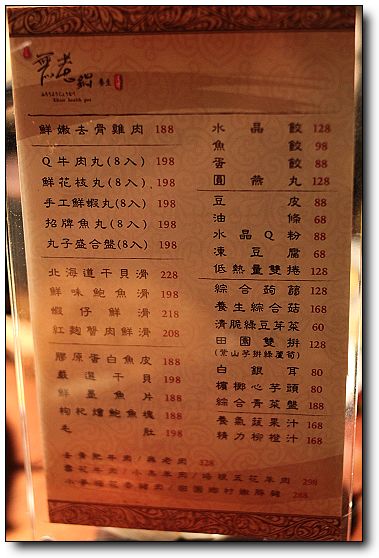 無老鍋 養生
鮮嫩去骨雞肉 188
Q牛肉丸(8入) 198
鮮花枝丸(8入) 198
手工鮮蝦丸(8入) 198
招牌魚丸(8入) 198
丸子盛合盤(8入) 198
北海道干貝滑 228
鮮味鮑魚滑 198
蝦仔鮮滑 218
紅麴蟹肉鮮滑 208
膠原蛋白魚皮 188
嚴選干貝 188
鮮量魚片 188
枸杞燴鮑魚塊 188
毛肚 198
水晶餃 128
魚餃 98
蛋餃 88
圓燕丸 128
豆皮 88
油條 68
水晶Q粉 88
凍豆腐 68
低熱量雙捲 128
綜合蒟蒻 128
養生綜合菇 168
清脆綠豆芽菜 60
田園雙拼 128
(紫山芋拼綠蘆筍)
白銀耳 80
檳榔心芋頭 80
綜合青菜盤 188
養氣蔬果汁 168
精力柳橙汁 168
328
298
288